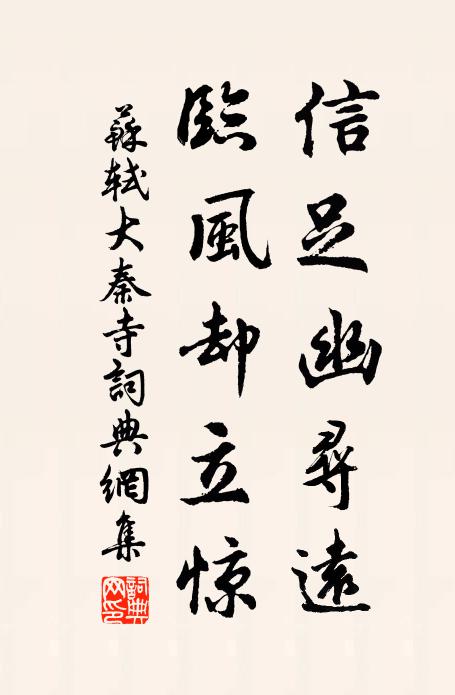 信足幽尋遠
臨風却立惊
蘇軾大秦寺詞典網集
詞典網印